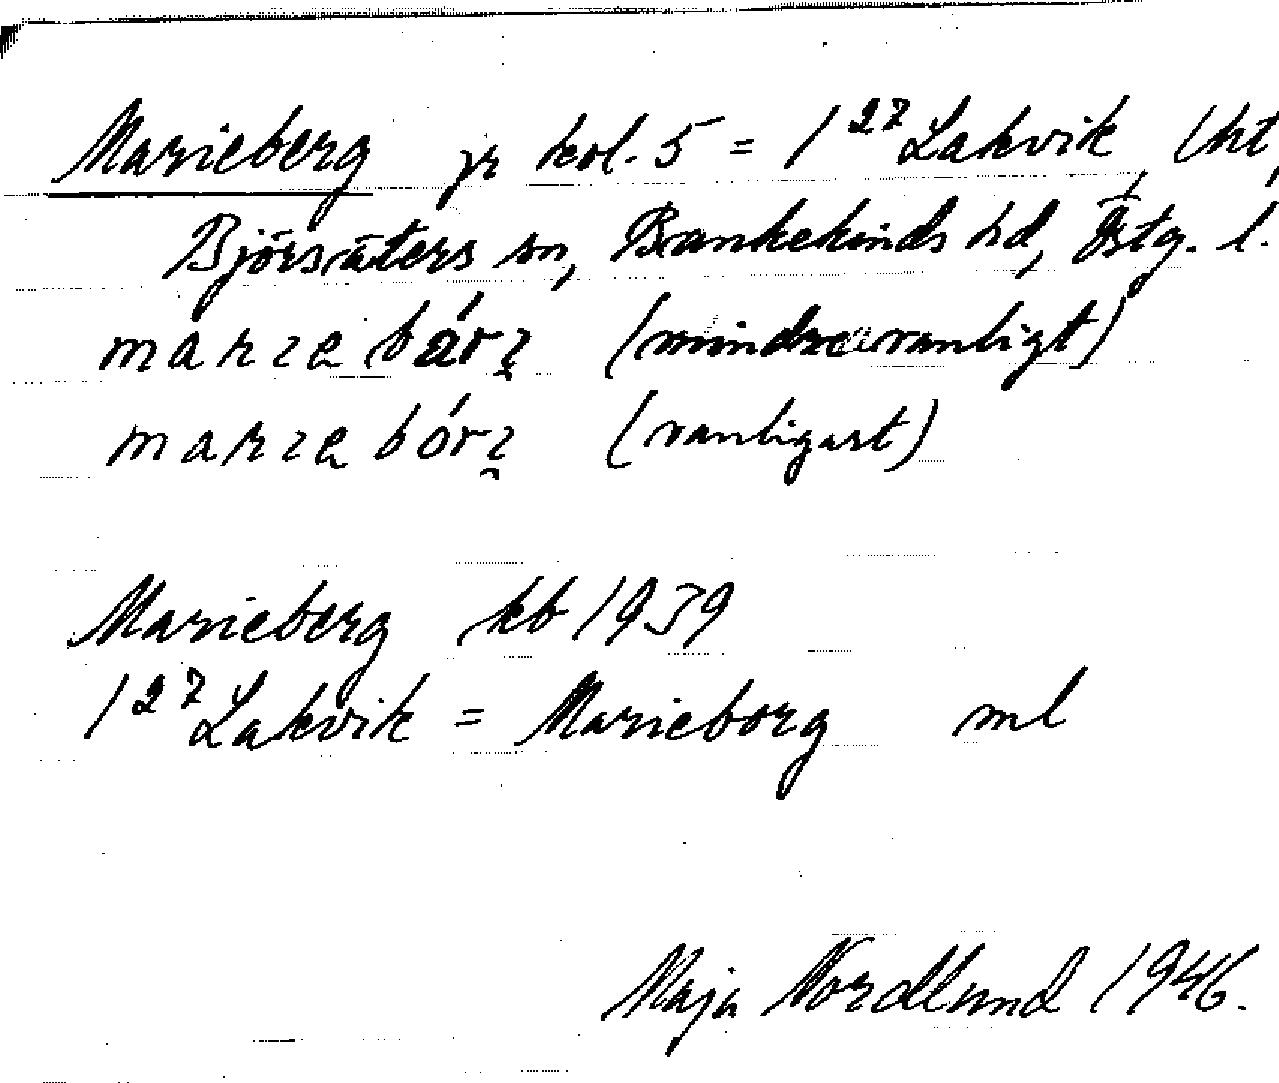 Marieberg jr kol. 5 = 1²⁷ Lakvik, lht,
Björsäters sn, Bankekinds hd, Östg. l.
marıe bárȷ (mindre vanligt)
marıe bórȷ (vanligast)
Marieberg kb 1939
1²⁷ Lakvik = Marieborg ml
Maja Nordlund 1946.